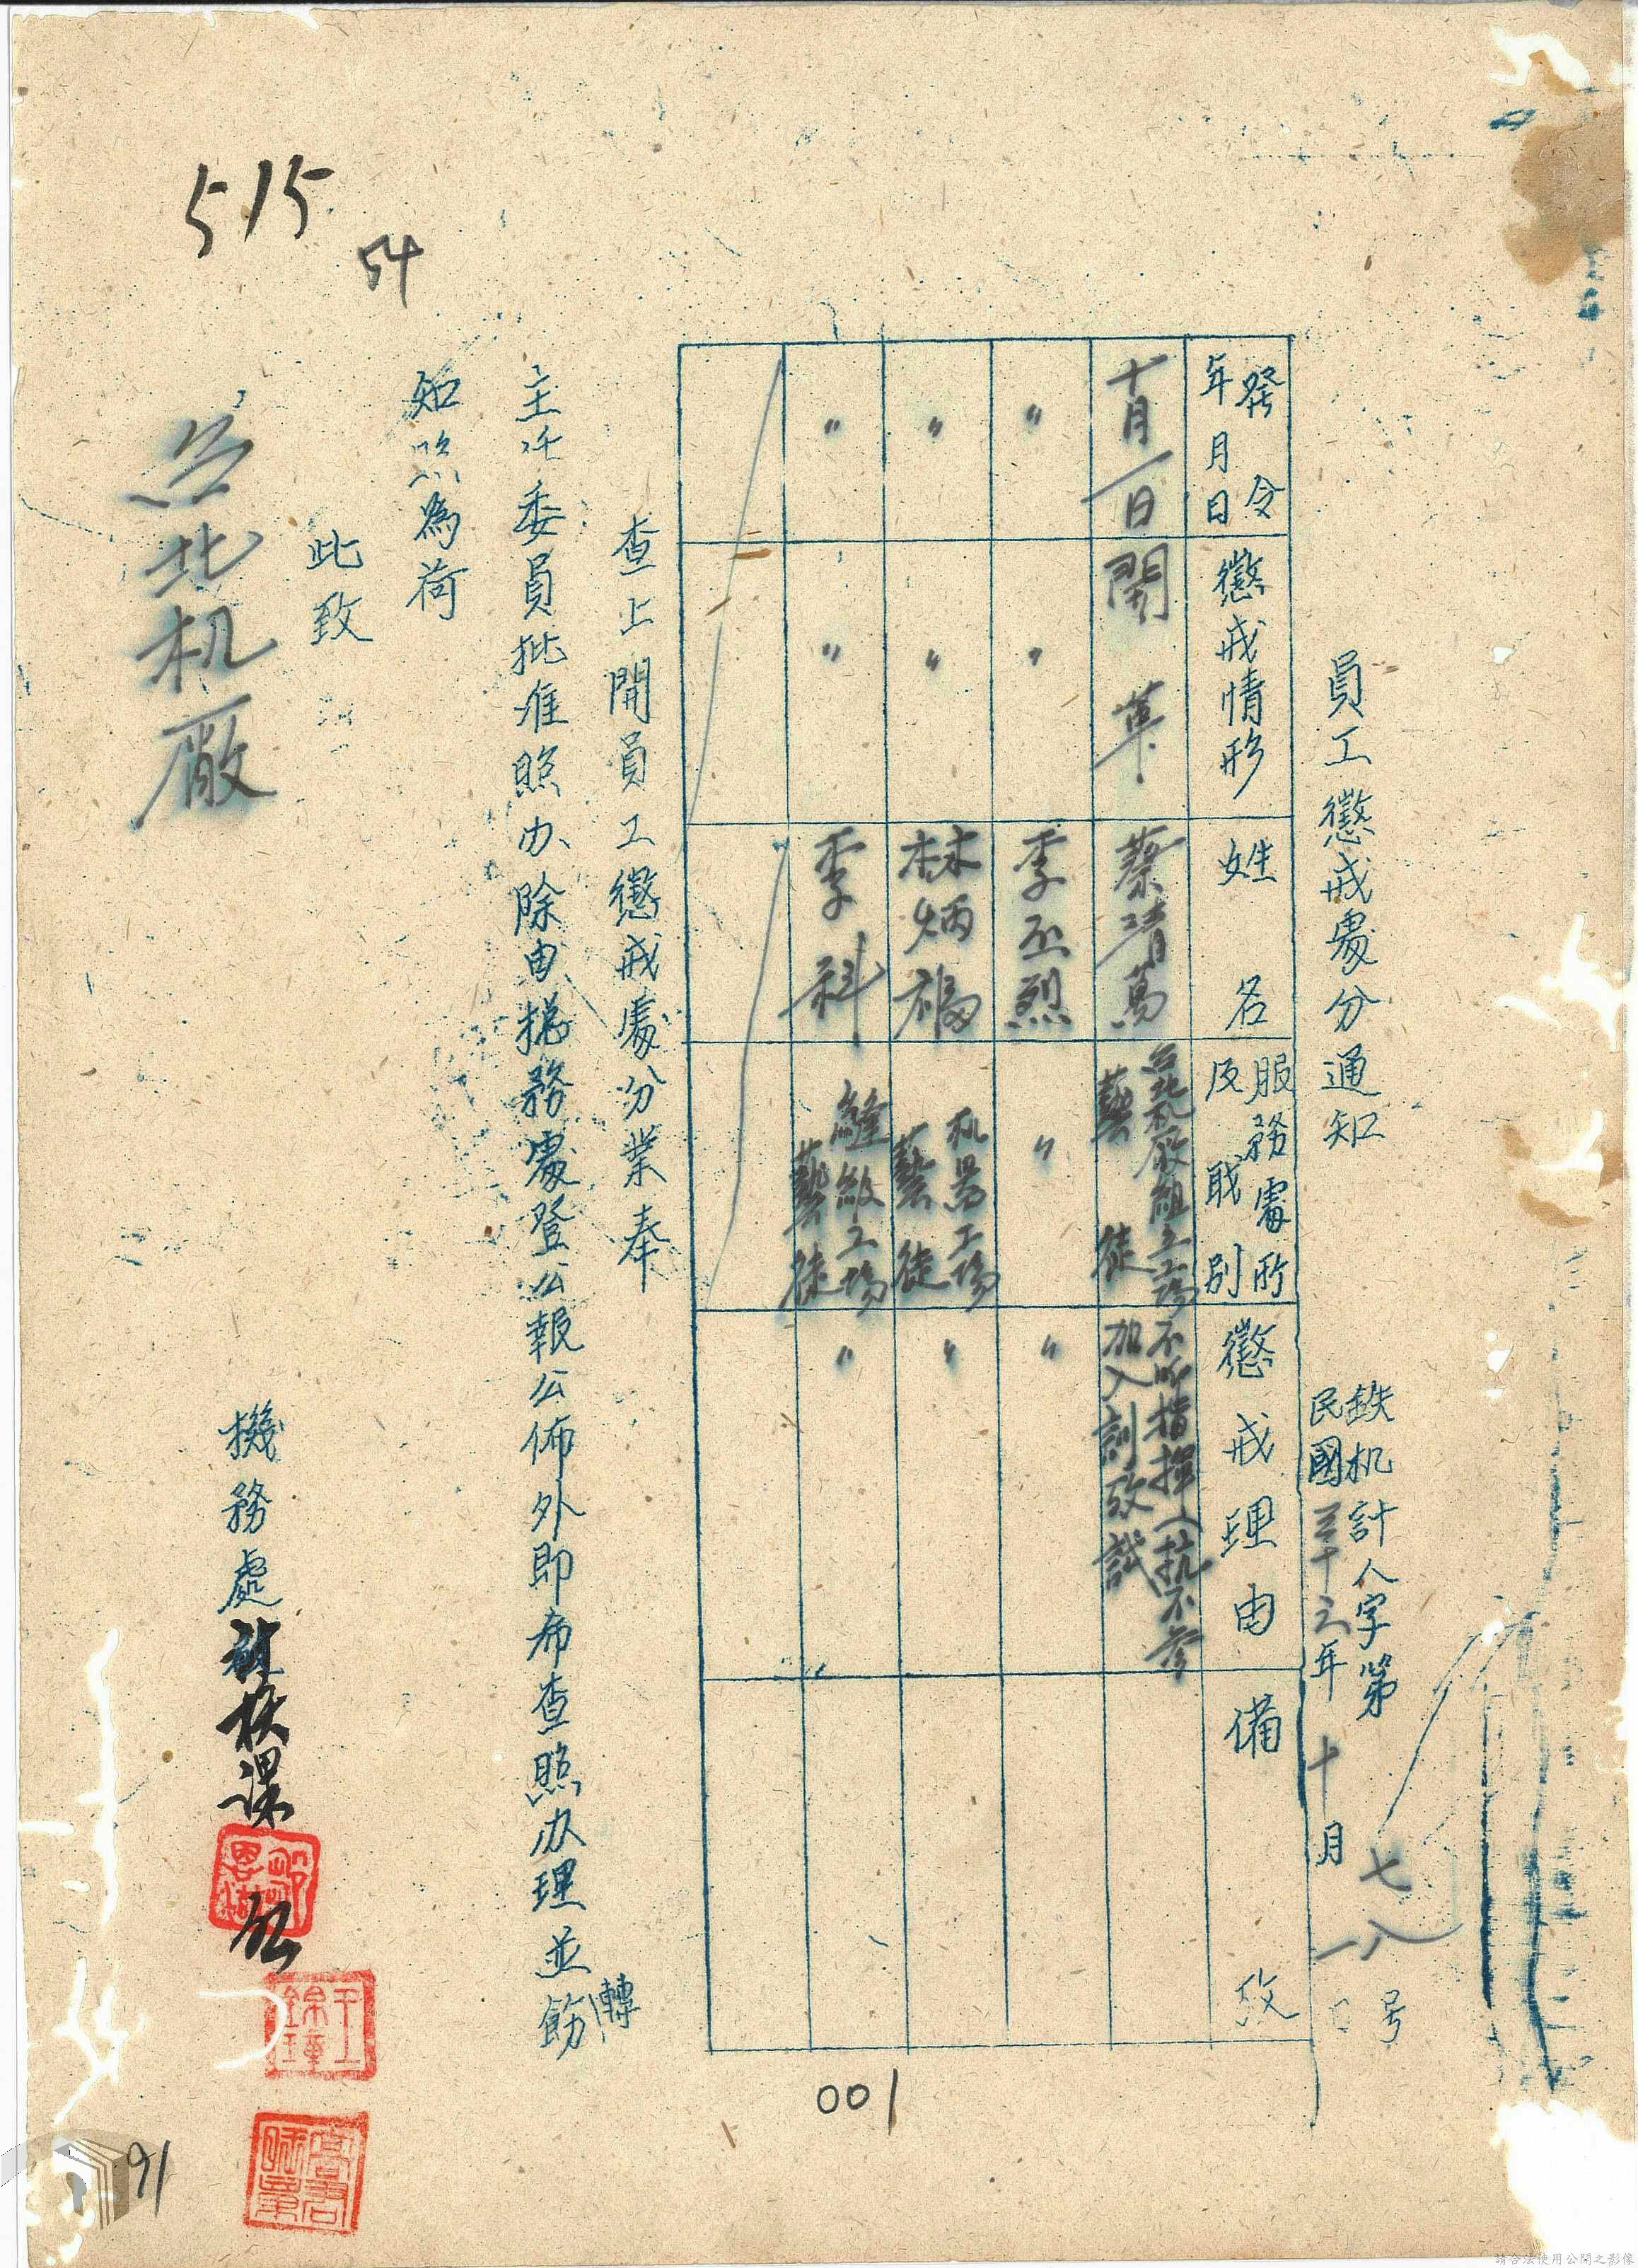 員工懲戒處分通知
鉄机計人字第七八号
民國三十六年十月一日
發令年月日
懲戒情形
姓名
服務處所及职別
懲戒理由
備攷
十月一日
開革
蔡清萬
台北机廠組立工場藝徒
不听指揮人執不參加入訓攷試
〃
〃
李丕烈
〃
〃
〃
〃
林炳福
机器工場藝徒
〃
〃
〃
李科
縫紉工場藝徒
〃
查上開員工懲戒處分業奉
主任委員批准照办除由総務處登公報公佈外即希查照办理並轉飭
知照為荷
此致
台北机廠
機務處
課
515
54
001
91
請合法使用公開之影像